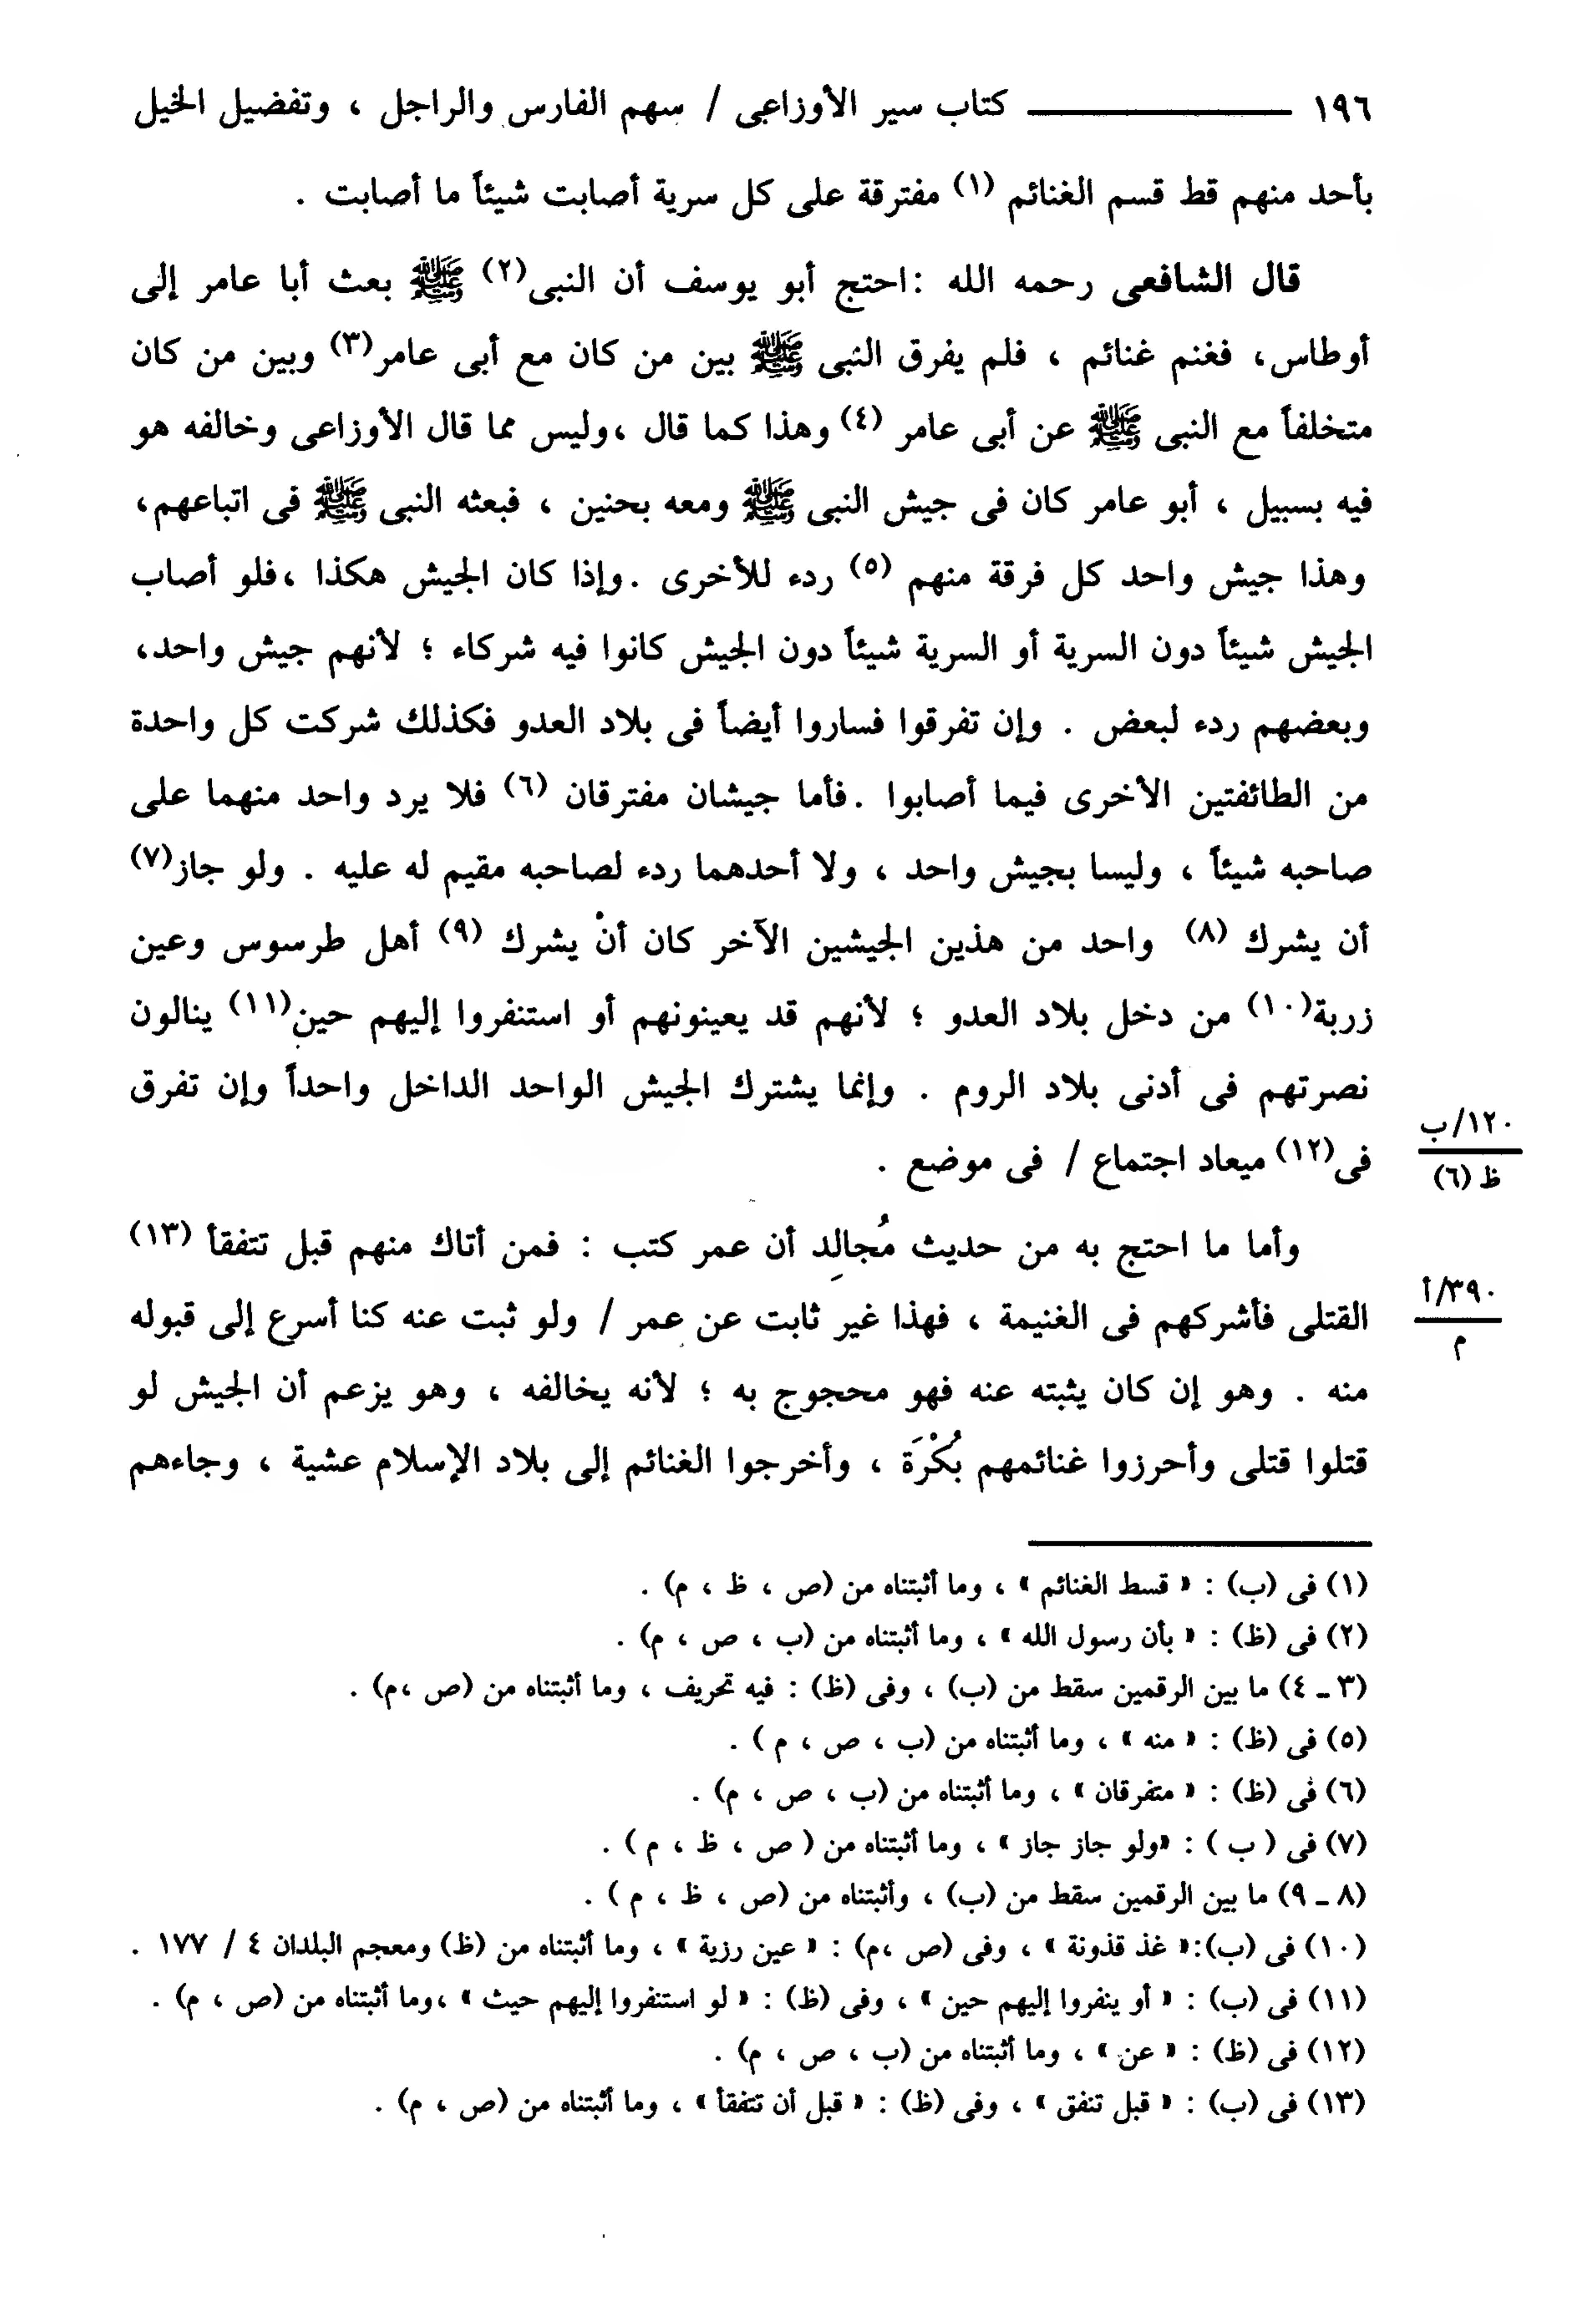 ١٩٦ ــــــــــــ كتاب سير الأوزاعى / سهم الفارس والراجل ، وتفضيل الخيل
بأحد منهم قط قسم الغنائم (١) مفترقة على كل سرية أصابت شيئاً ما أصابت .
قال الشافعى رحمه الله :احتج أبو يوسف أن النبى(٢) ﷺ بعث أبا عامر إلى
أوطاس، فغنم غنائم ، فلم يفرق النبى ﷺ بين من كان مع أبى عامر(٣) وبين من كان
متخلفاً مع النبى ﷺ عن أبى عامر (٤) وهذا كما قال ،وليس مما قال الأوزاعى وخالفه هو
فيه بسبيل ، أبو عامر كان فى جيش النبى ﷺ ومعه بحنين ، فبعثه النبى ﷺ فى اتباعهم،
وهذا جيش واحد كل فرقة منهم (٥) ردء للأخرى .وإذا كان الجيش هكذا ،فلو أصاب
الجيش شيئاً دون السرية أو السرية شيئاً دون الجيش كانوا فيه شركاء ؛ لأنهم جيش واحد،
وبعضهم ردء لبعض . وإن تفرقوا فساروا أيضاً فى بلاد العدو فكذلك شركت كل واحدة
من الطائفتين الأخرى فيما أصابوا .فأما جيشان مفترقان (٦) فلا يرد واحد منهما على
صاحبه شيئاً ، وليسا بجيش واحد ، ولا أحدهما ردء لصاحبه مقيم له عليه . ولو جاز(٧)
أن يشرك (٨) واحد من هذين الجيشين الآخر كان أنْ يشرك (٩) أهل طرسوس وعين
زربة(١٠) من دخل بلاد العدو ؛ لأنهم قد يعينونهم أو استنفروا إليهم حين(١١) ينالون
نصرتهم فى أدنى بلاد الروم . وإنما يشترك الجيش الواحد الداخل واحداً وإن تفرق
فى(١٢) ميعاد اجتماع / فى موضع .
١٢٠/ب
ظ (٦)
وأما ما احتج به من حديث مُجالِد أن عمر كتب : فمن أتاك منهم قبل تتفقأ (١٣)
القتلى فأشركهم فى الغنيمة ، فهذا غير ثابت عن عمر / ولو ثبت عنه كنا أسرع إلى قبوله
٣٩٠/أ
م
منه . وهو إن كان يثبته عنه فهو محجوج به ؛ لأنه يخالفه ، وهو يزعم أن الجيش لو
قتلوا قتلى وأحرزوا غنائمهم بُكْرَة ، وأخرجوا الغنائم إلى بلاد الإسلام عشية ، وجاءهم
(١) فى (ب) : « قسط الغنائم » ، وما أثبتناه من (ص ، ظ ، م) .
(٢) فى (ظ) : « بأن رسول الله » ، وما أثبتناه من (ب ، ص ، م) .
(٣ ـ ٤) ما بين الرقمين سقط من (ب) ، وفى (ظ) : فيه تحريف ، وما أثبتناه من (ص ،م) .
(٥) فى (ظ) : « منه » ، وما أثبتناه من (ب ، ص ، م ) .
(٦) فى (ظ) : « متفرقان » ، وما أثبتناه من (ب ، ص ، م) .
(٧) فى ( ب ) : «ولو جاز جاز » ، وما أثبتناه من ( ص ، ظ ، م ) .
(٨ ـ ٩) ما بين الرقمين سقط من (ب) ، وأثبتناه من (ص ، ظ ، م ) .
(١٠) فى (ب):« غذ قذونة » ، وفى (ص ،م) : « عين رزية » ، وما أثبتناه من (ظ) ومعجم البلدان ٤ / ١٧٧ .
(١١) فى (ب) : « أو ينفروا إليهم حين » ، وفى (ظ) : « لو استنفروا إليهم حيث » ،وما أثبتناه من (ص ، م) .
(١٢) فى (ظ) : « عن » ، وما أثبتناه من (ب ، ص ، م) .
(١٣) فى (ب) : « قبل تنفق » ، وفى (ظ) : « قبل أن تتفقأ » ، وما أثبتناه من (ص ، م) .